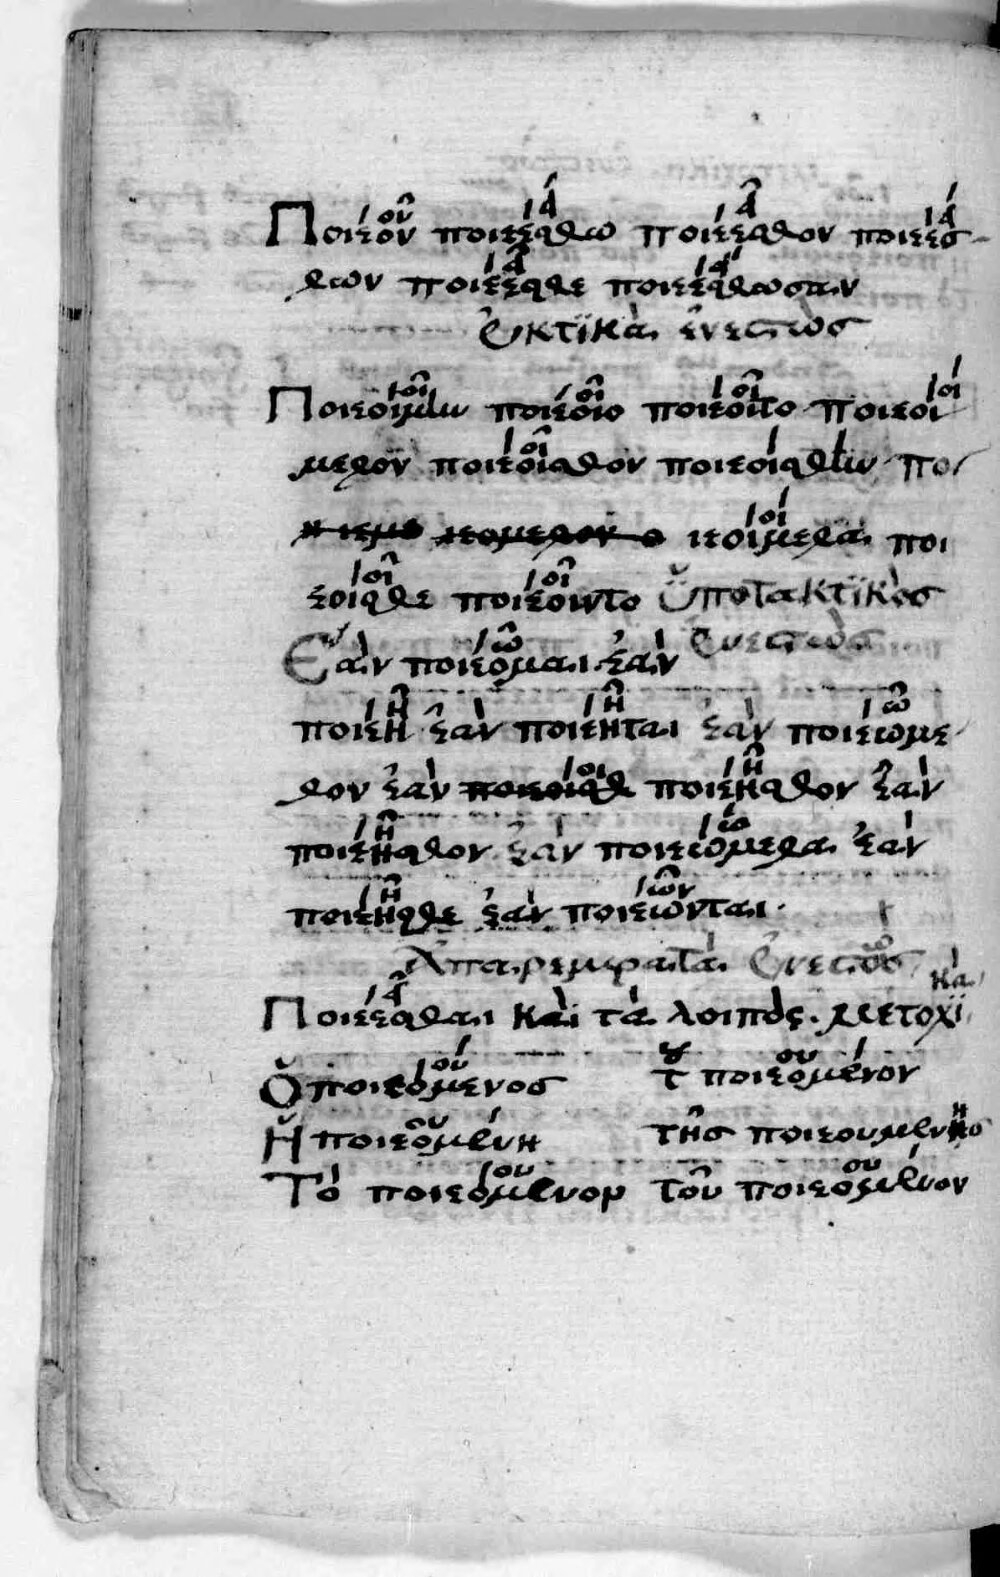 Ποιέου ποιεέσθω ποιέεσθον ποιεέσ-
θων ποιέεσθε ποιεέσθωσαν
Εὐκτϊκὰ ἐνεστὼς
Ποιεοίμην ποιέοιο ποιέοιτο ποιεοί
μεθον ποιέοισθον ποιεοίσθην ποι
εοίμεθα ποι
έοισθε ποιέοιντο ὑποτακτϊκὸς
Ἐὰν ποιέωμαι ἐὰν ἐνεστὼς
ποιέῃ ἐὰν ποιέηται ἐὰν ποιεώμε
θον ἐὰν ποιέησθον ἐὰν
ποιέησθον ἐὰν ποιεώμεθα ἐὰν
ποιέησθε ἐὰν ποιέωνται.
Ἀπαρεμφατὰ ἐνεστὼς
Ποιέεσθαι καὶ τὰ λοιπὰς. μετοχϊκὰ
Ὁ ποιεόμενος τ ποιεομένου
Ἡ ποιεομένη τῆς ποιεουμένης
Τὸ ποιεόμενον τοῦ ποιεομένου